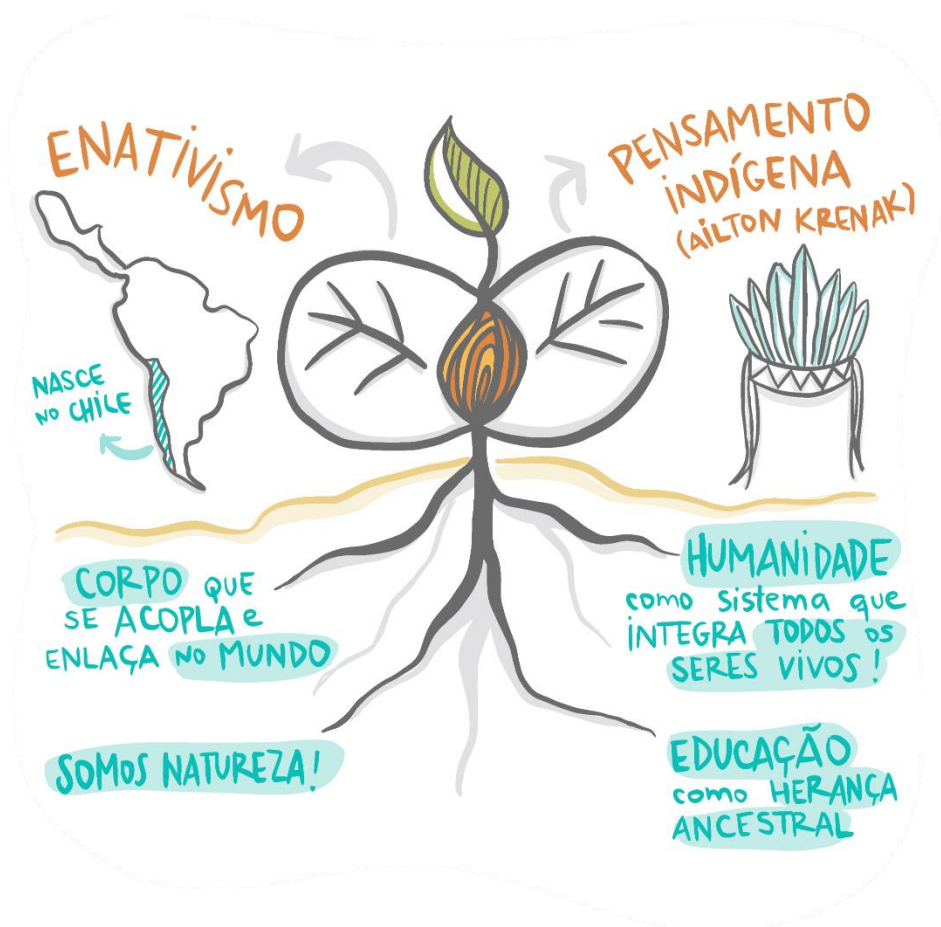 ENATIVISMO
NASCE
NO CHILE
PENSAMENTO
INDÍGENA
(AILTON KRENAK)
CORPO QUE
SE ACOPLA e
ENLAÇA NO MUNDO
SOMOS NATUREZA!
HUMANIDADE
como sistema que
INTEGRA TODOS os
SERES VIVOS!
EDUCAÇÃO
como HERANÇA
ANCESTRAL